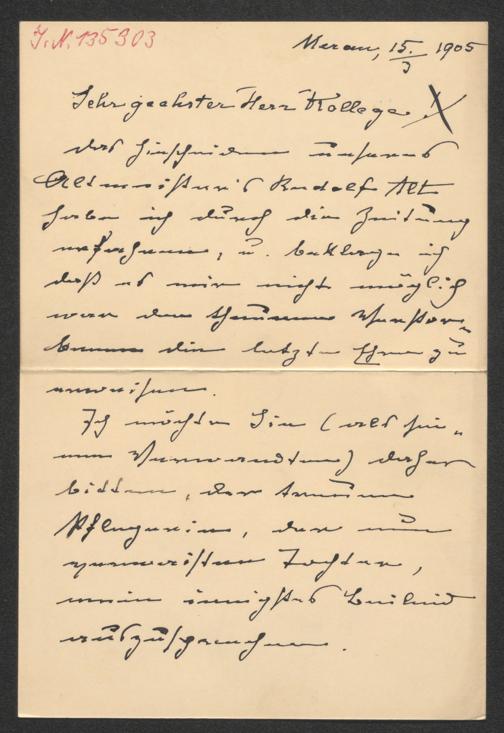 J.N. 135903
Meran, 15./3 1905
Sehr geehrter Herr Kollege!
das Hinscheiden unseres
Altmeister's Rudolf Alt
habe ich durch die Zeitung
erfahren, u. beklage ich
daß es mir nicht möglich
war dem theueren Verstor-
benen die letzte Ehre zu
erweisen.
Ich möchte Sie (als sei-
nen Verwandten) daher
bitten, der treuen
Pflegerin, der nun
verwaisten Tochter,
mein innigstes Beileid
auszusprechen.